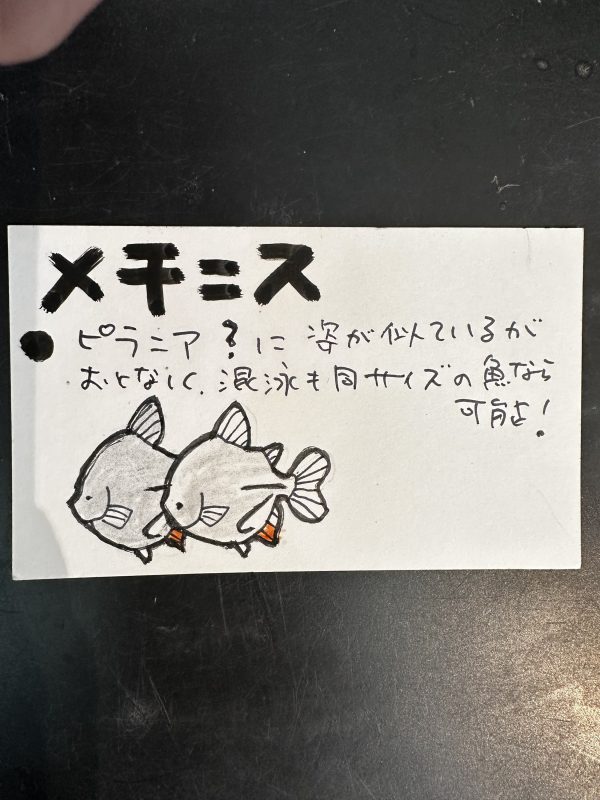 メチニス
ピラニア?に姿が似ているが
おとなしく、混泳も同サイズの魚なら
可能!